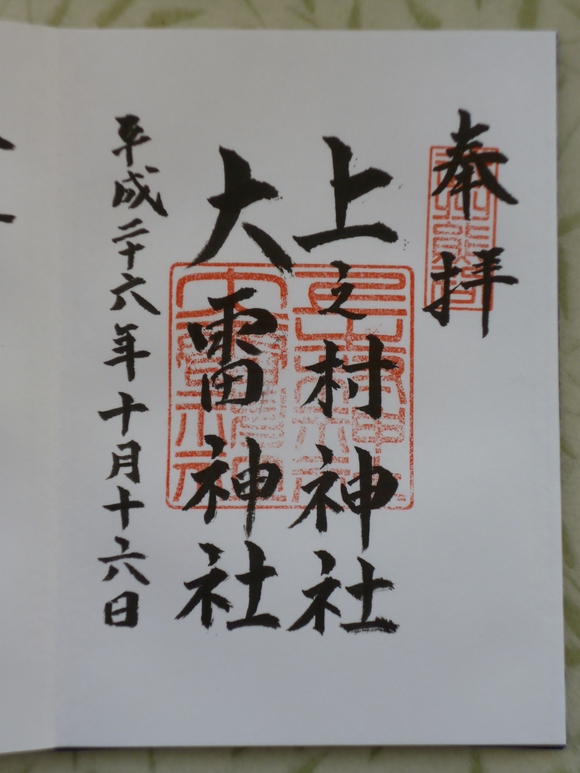 奉拝
上之村神社
大雷神社
平成二十六年十月十六日